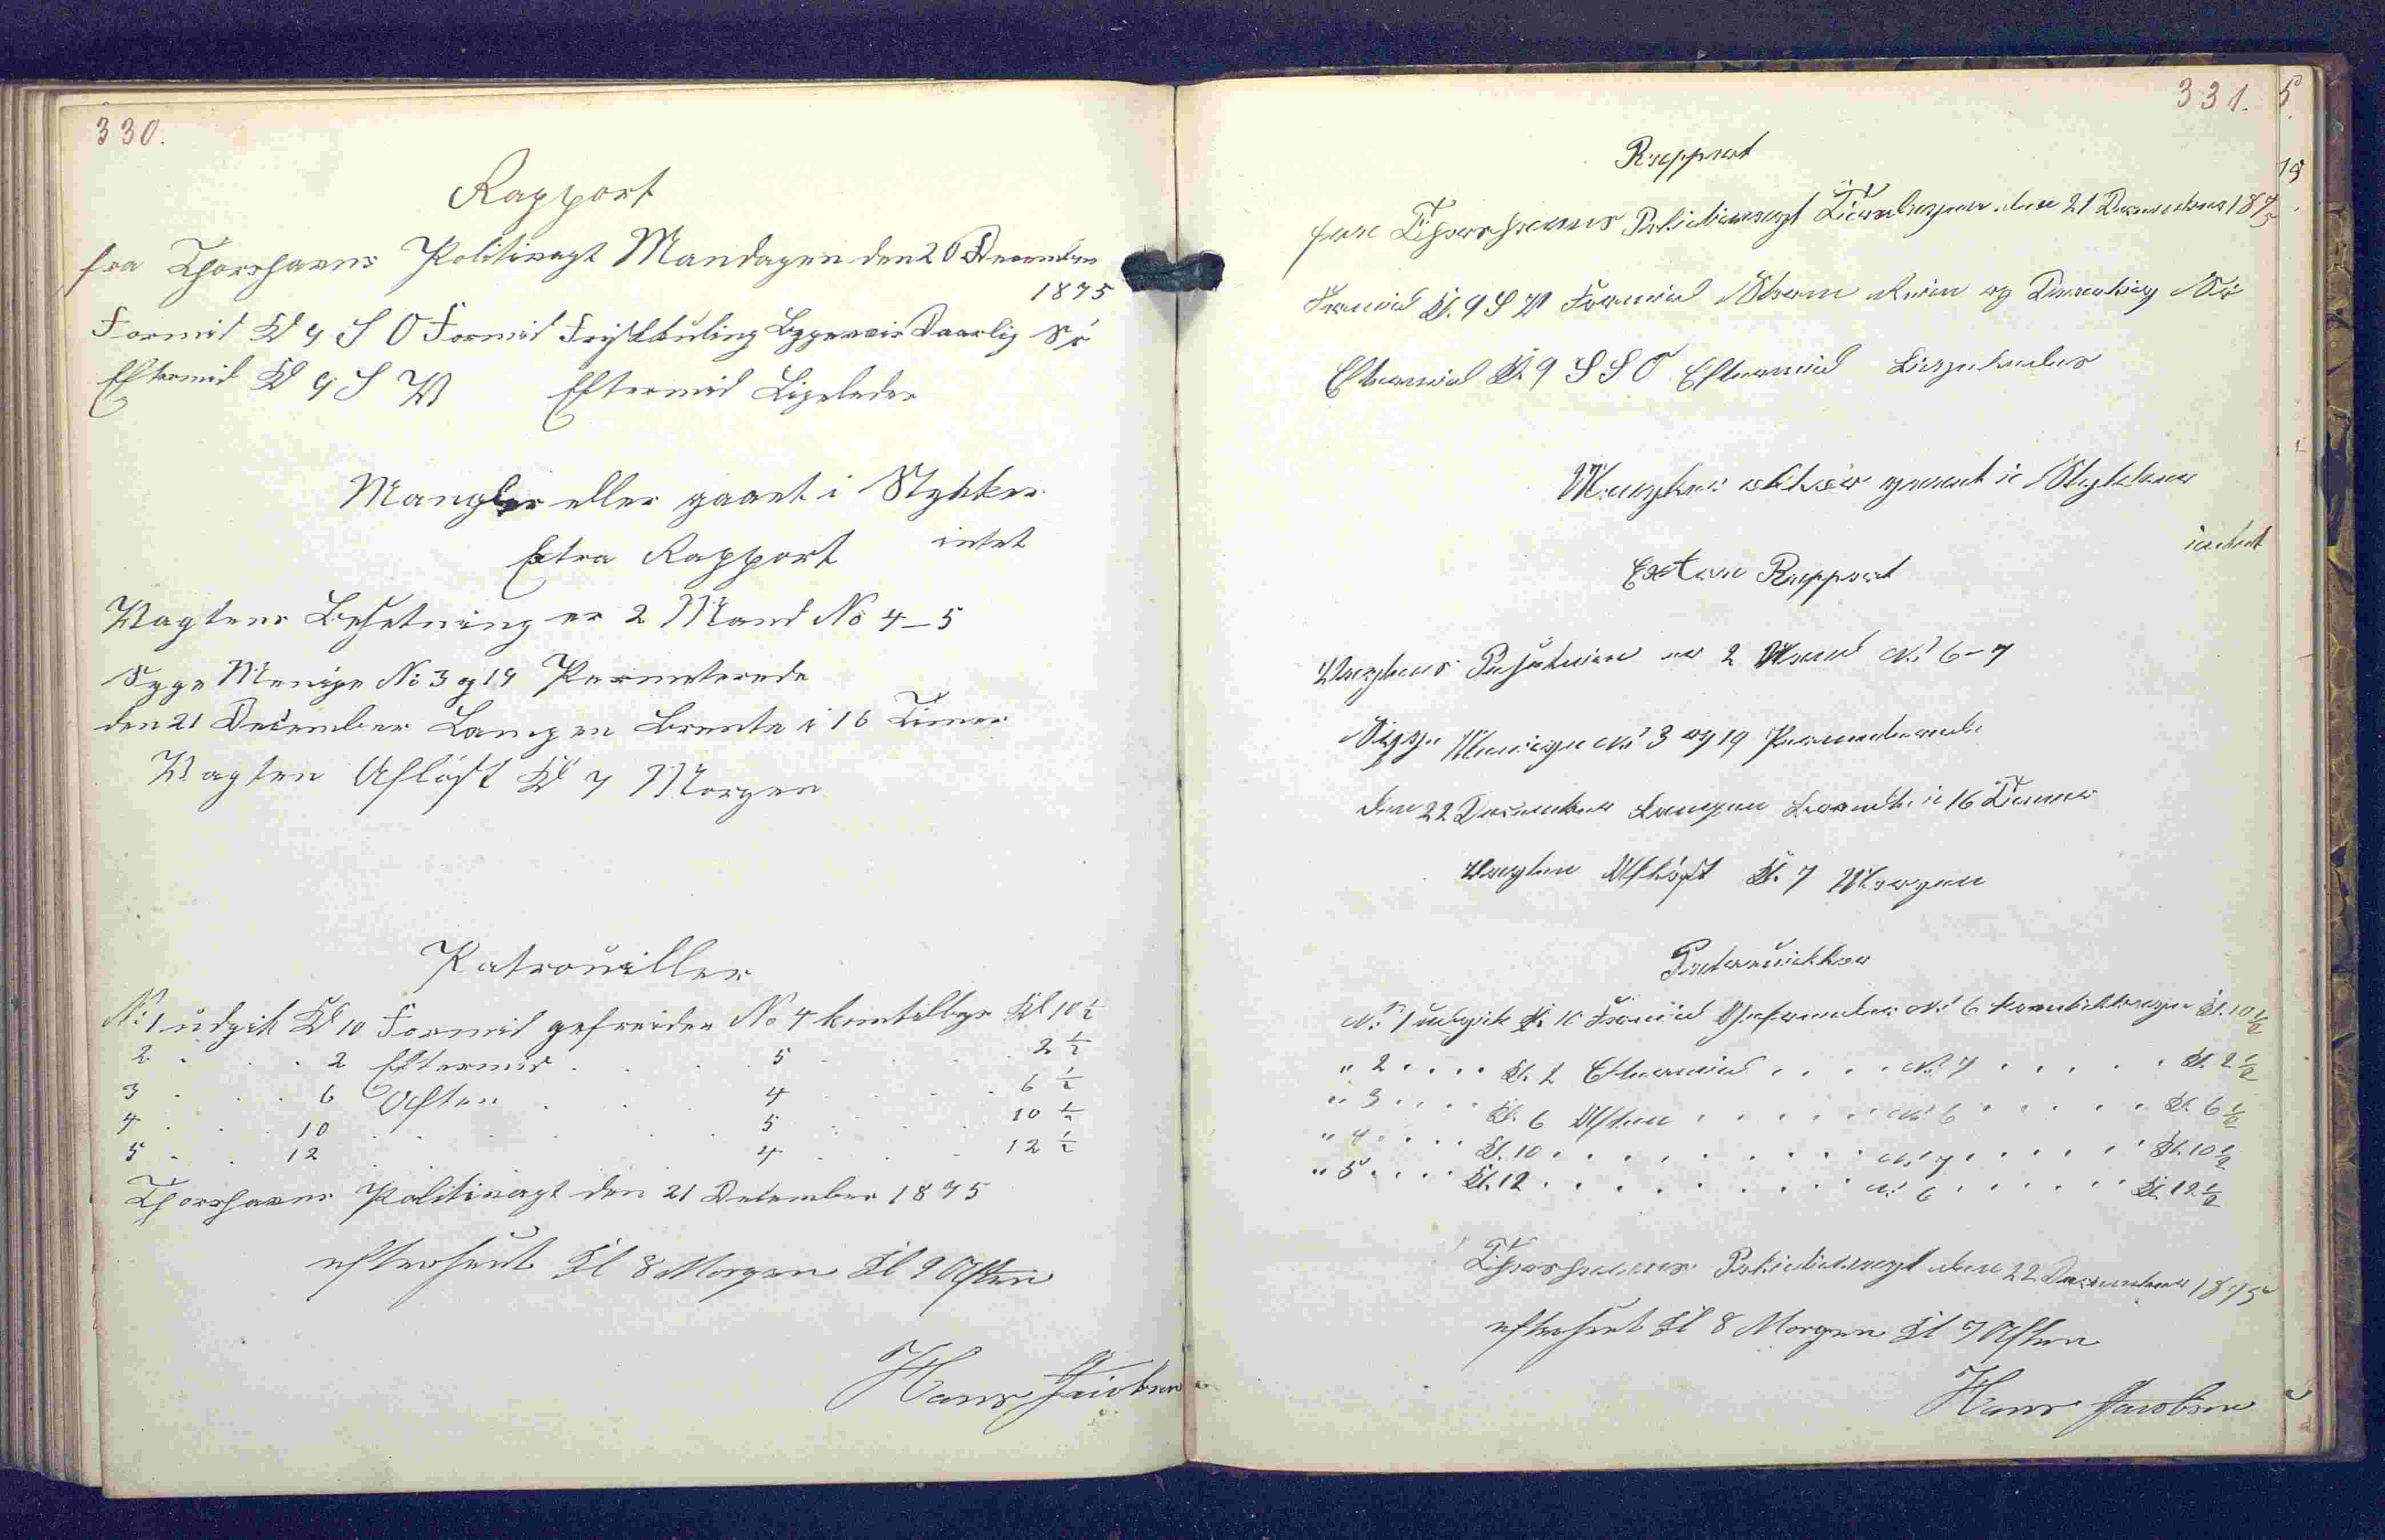 330.
Rapport
fra Thorshavns Politivagt Mandagen den 20 December
1875
Formid Kl 9 S O Formid Frisk Kuling Bygeveir Daarlig Sö
Eftermid Kl 9 S W Eftermid Ligeledes
Mangler eller gaaet i Stykker
intet
Extra Rapport
Vagtens Besetning er 2 Mand No 4-5
Syge Menige No 3 og 19 Permeterede
den 21 December Lampen Brente i 16 Timer
Vagten Aflöst Kl 7 Morgen
Patrouiller
No 1 udgik Kl 10 Formid gefreider No 4 komtilbge Kl 10 1/2
2 . . . 2 Eftermid . . . 5 . . . 2 1/2
3 . . . 6 Aften . . . 4 . . . 6 1/2
4 . . . 10 . . . 5 . . . 10 1/2
5 . . . 12 . . . 4 . . . 12 1/2
Thorshavns Politivagt den 21 December 1875
efterseet Kl 8 Morgen Kl 9 Aften
Hans Jacobsen
331.
Rapport
fra Thorshavns Politivagt Tirsdagen den 21 December 1875
Formid Kl. 9 S W Formid Storm Rein og Daarlig Sö
Eftermid Kl. 9 S S O Eftermid Ligeledes
Mangler eller gaaet i Stykker
intet
Extra Rapport
Vagtens Besetnin er 2 Mand No 6-7
Syge Menige No 3 og 19 Permeterede
den 22 December Lampen Brendte i 16 Timer
Vagten Aflöst Kl. 7 Morgen
Patrouiller
No 1 udgik Kl. 10 Formid Gefreider No 6 komtilbage Kl. 10 1/2
" 2 . . . . Kl. 2 Eftermid . . . . No 7 . . . . . Kl. 2 1/2
" 3 . . . . Kl. 6 Aften . . . . . . No 6 . . . . . Kl. 6 1/2
" 4 . . . . Kl. 10 . . . . . . . . No 7 . . . . . Kl. 10 1/2
" 5 . . . . Kl. 12 . . . . . . . . No 6 . . . . . Kl. 12 1/2
Thorshavns Politivagt den 22 December 1875
efterseet Kl 8 Morgen Kl 7 Aften
Hans Jacobsen